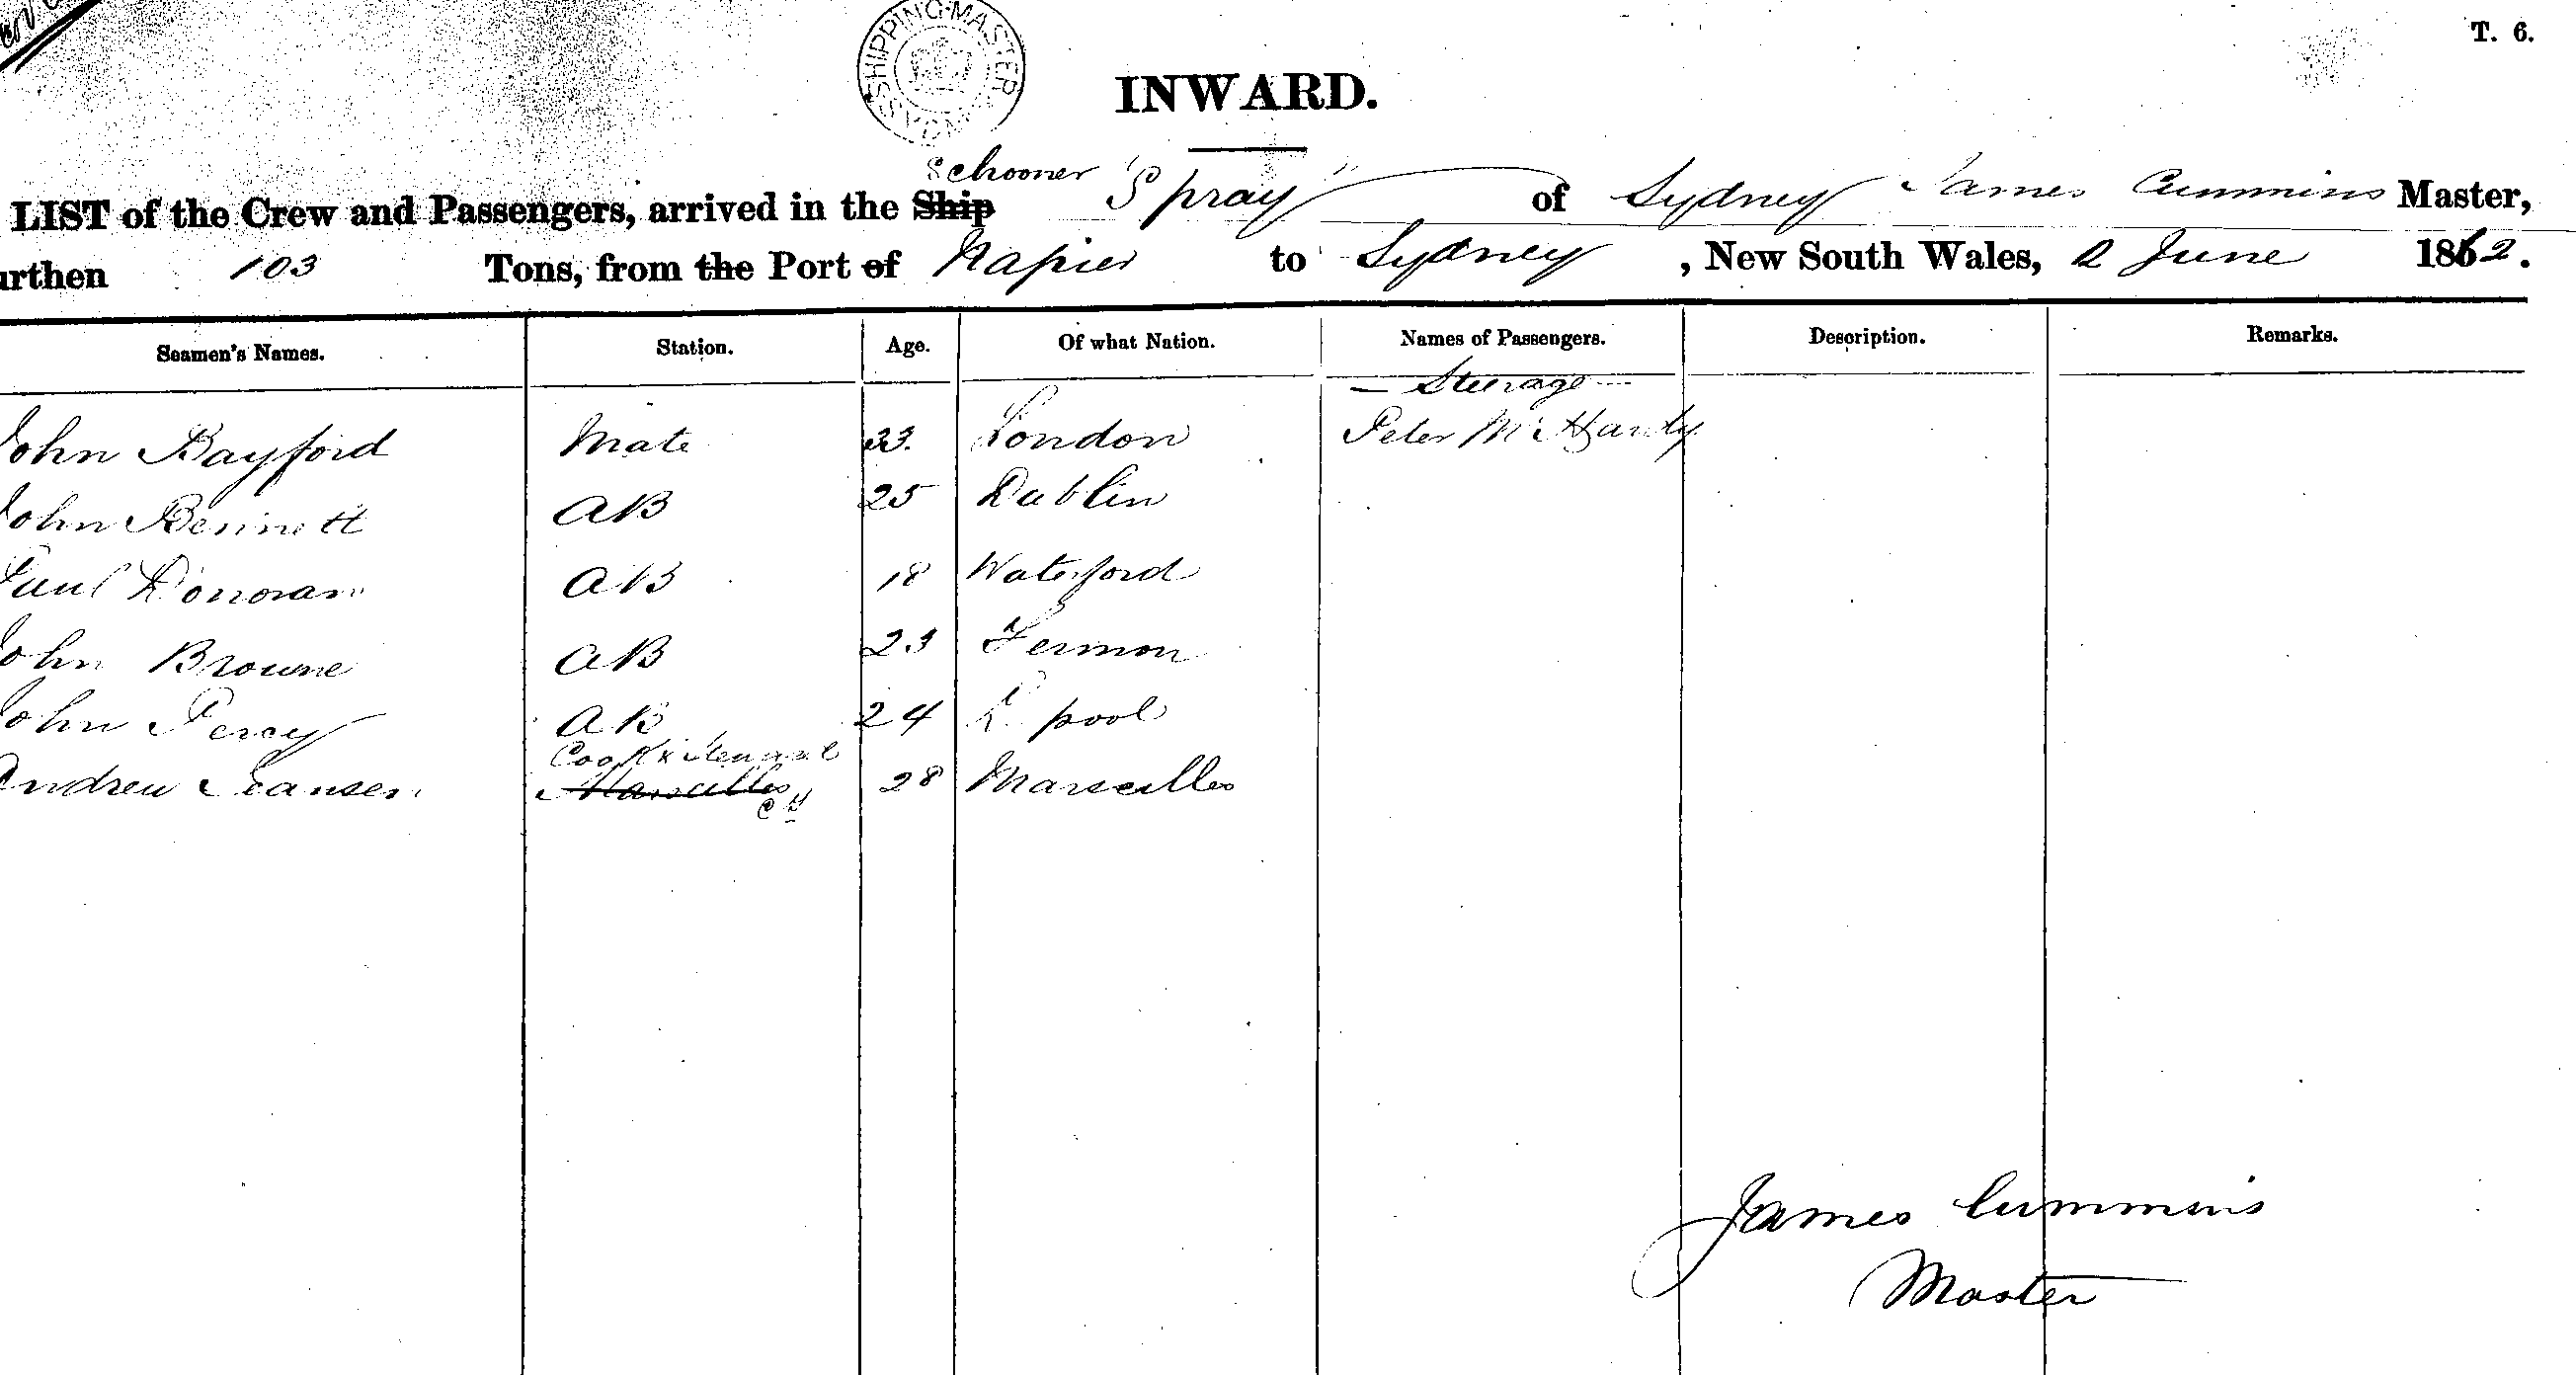 SHIPPING MASTER SYDNEY
T. 6.
INWARD.
Schooner
LIST of the Crew and Passengers, arrived in the Ship "Spray" of Sydney James Cummins Master,
urthen 103 Tons, from the Port of Napier to Sydney, New South Wales, 2 June 1862.
Seamen's Names. Station. Age. Of what Nation. Names of Passengers. Description. Remarks.
— Steerage —
John Bayford Mate 33. London Peter McHardy
John Bennett AB 25 Dublin
Paul Donovan AB 18 Waterford
John Browne AB 23 Fermon
John Percy AB 24 L'pool
Cook & Steward
Andrew Jeansen Marseilles 28 Marseilles
James Cummins
Master